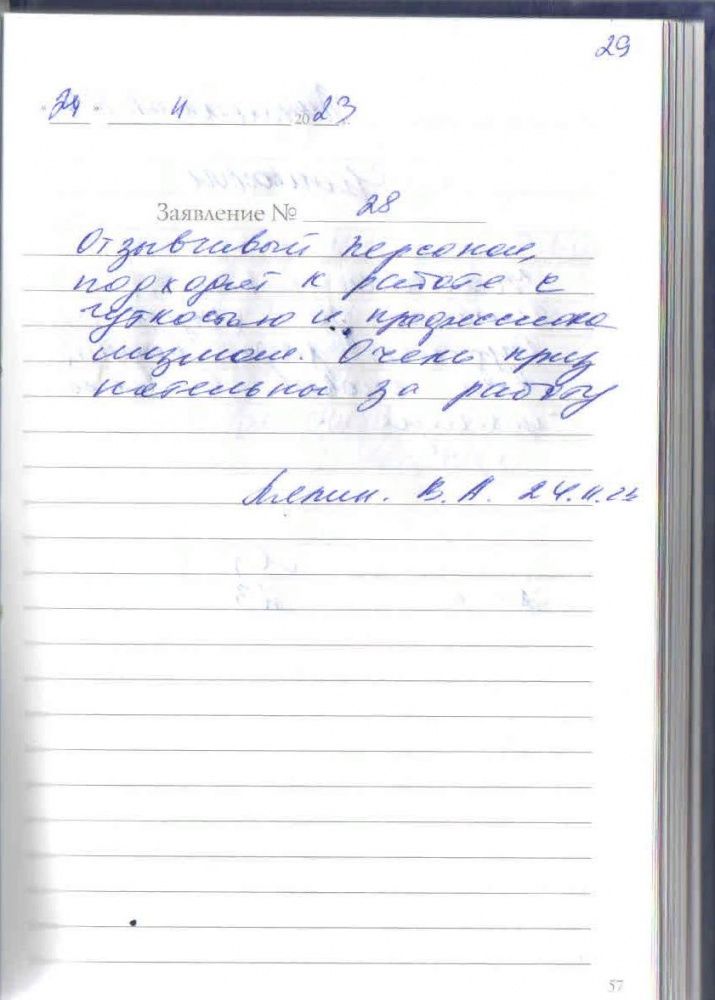 29
"24" 11 2023
Заявление № 28
Отзывчивый персонал,
подходят к работе с
чуткостью и професссиона
лизмом. Очень приз
нательны за работу
В. А. 24.11.23
57